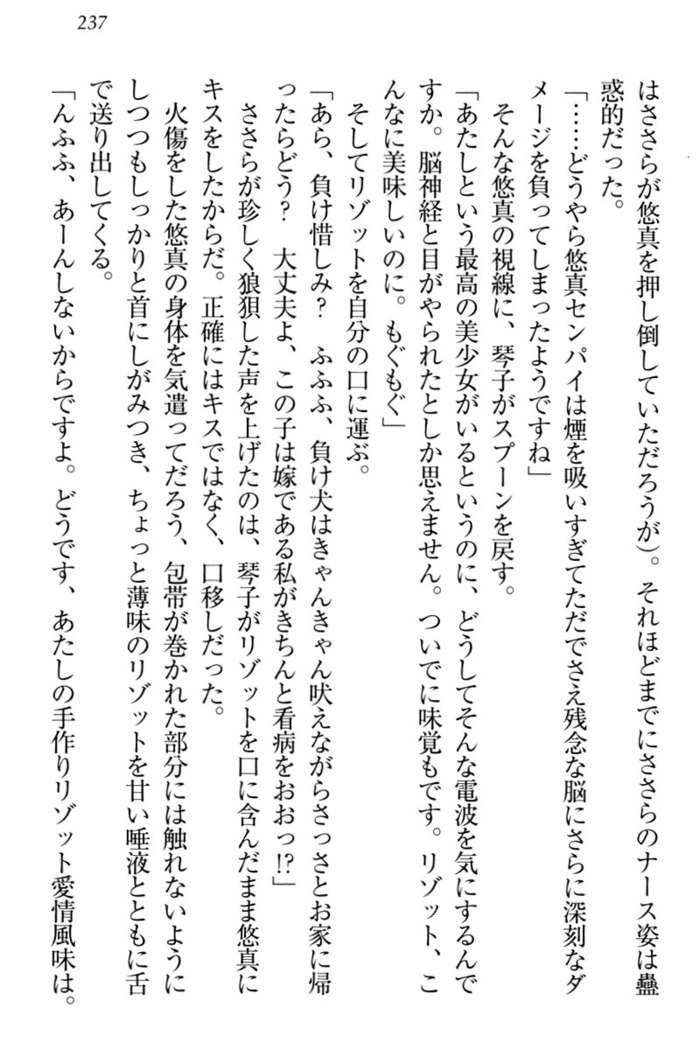 237
はささらが悠真を押し倒していただろうが）。それほどまでにささらのナース姿は蠱
惑的だった。
「……どうやら悠真センパイは煙を吸いすぎてただでさえ残念な脳にさらに深刻なダ
メージを負ってしまったようですね」
そんな悠真の視線に、琴子がスプーンを戻す。
「あたしという最高の美少女がいるというのに、どうしてそんな電波を気にするんで
すか。脳神経と目がやられたとしか思えません。ついでに味覚もです。リゾット、こ
んなに美味しいのに。もぐもぐ」
そしてリゾットを自分の口に運ぶ。
「あら、負け惜しみ？　ふふふ、負け犬はきゃんきゃん吠えながらさっさとお家に帰
ったらどう？　大丈夫よ、この子は嫁である私がきちんと看病をおおっ!?」
ささらが珍しく狼狽した声を上げたのは、琴子がリゾットを口に含んだまま悠真に
キスをしたからだ。正確にはキスではなく、口移しだった。
火傷をした悠真の身体を気遣ってだろう、包帯が巻かれた部分には触れないように
しつつもしっかりと首にしがみつき、ちょっと薄味のリゾットを甘い唾液とともに舌
で送り出してくる。
「んふふ、あーんしないからですよ。どうです、あたしの手作りリゾット愛情風味は。